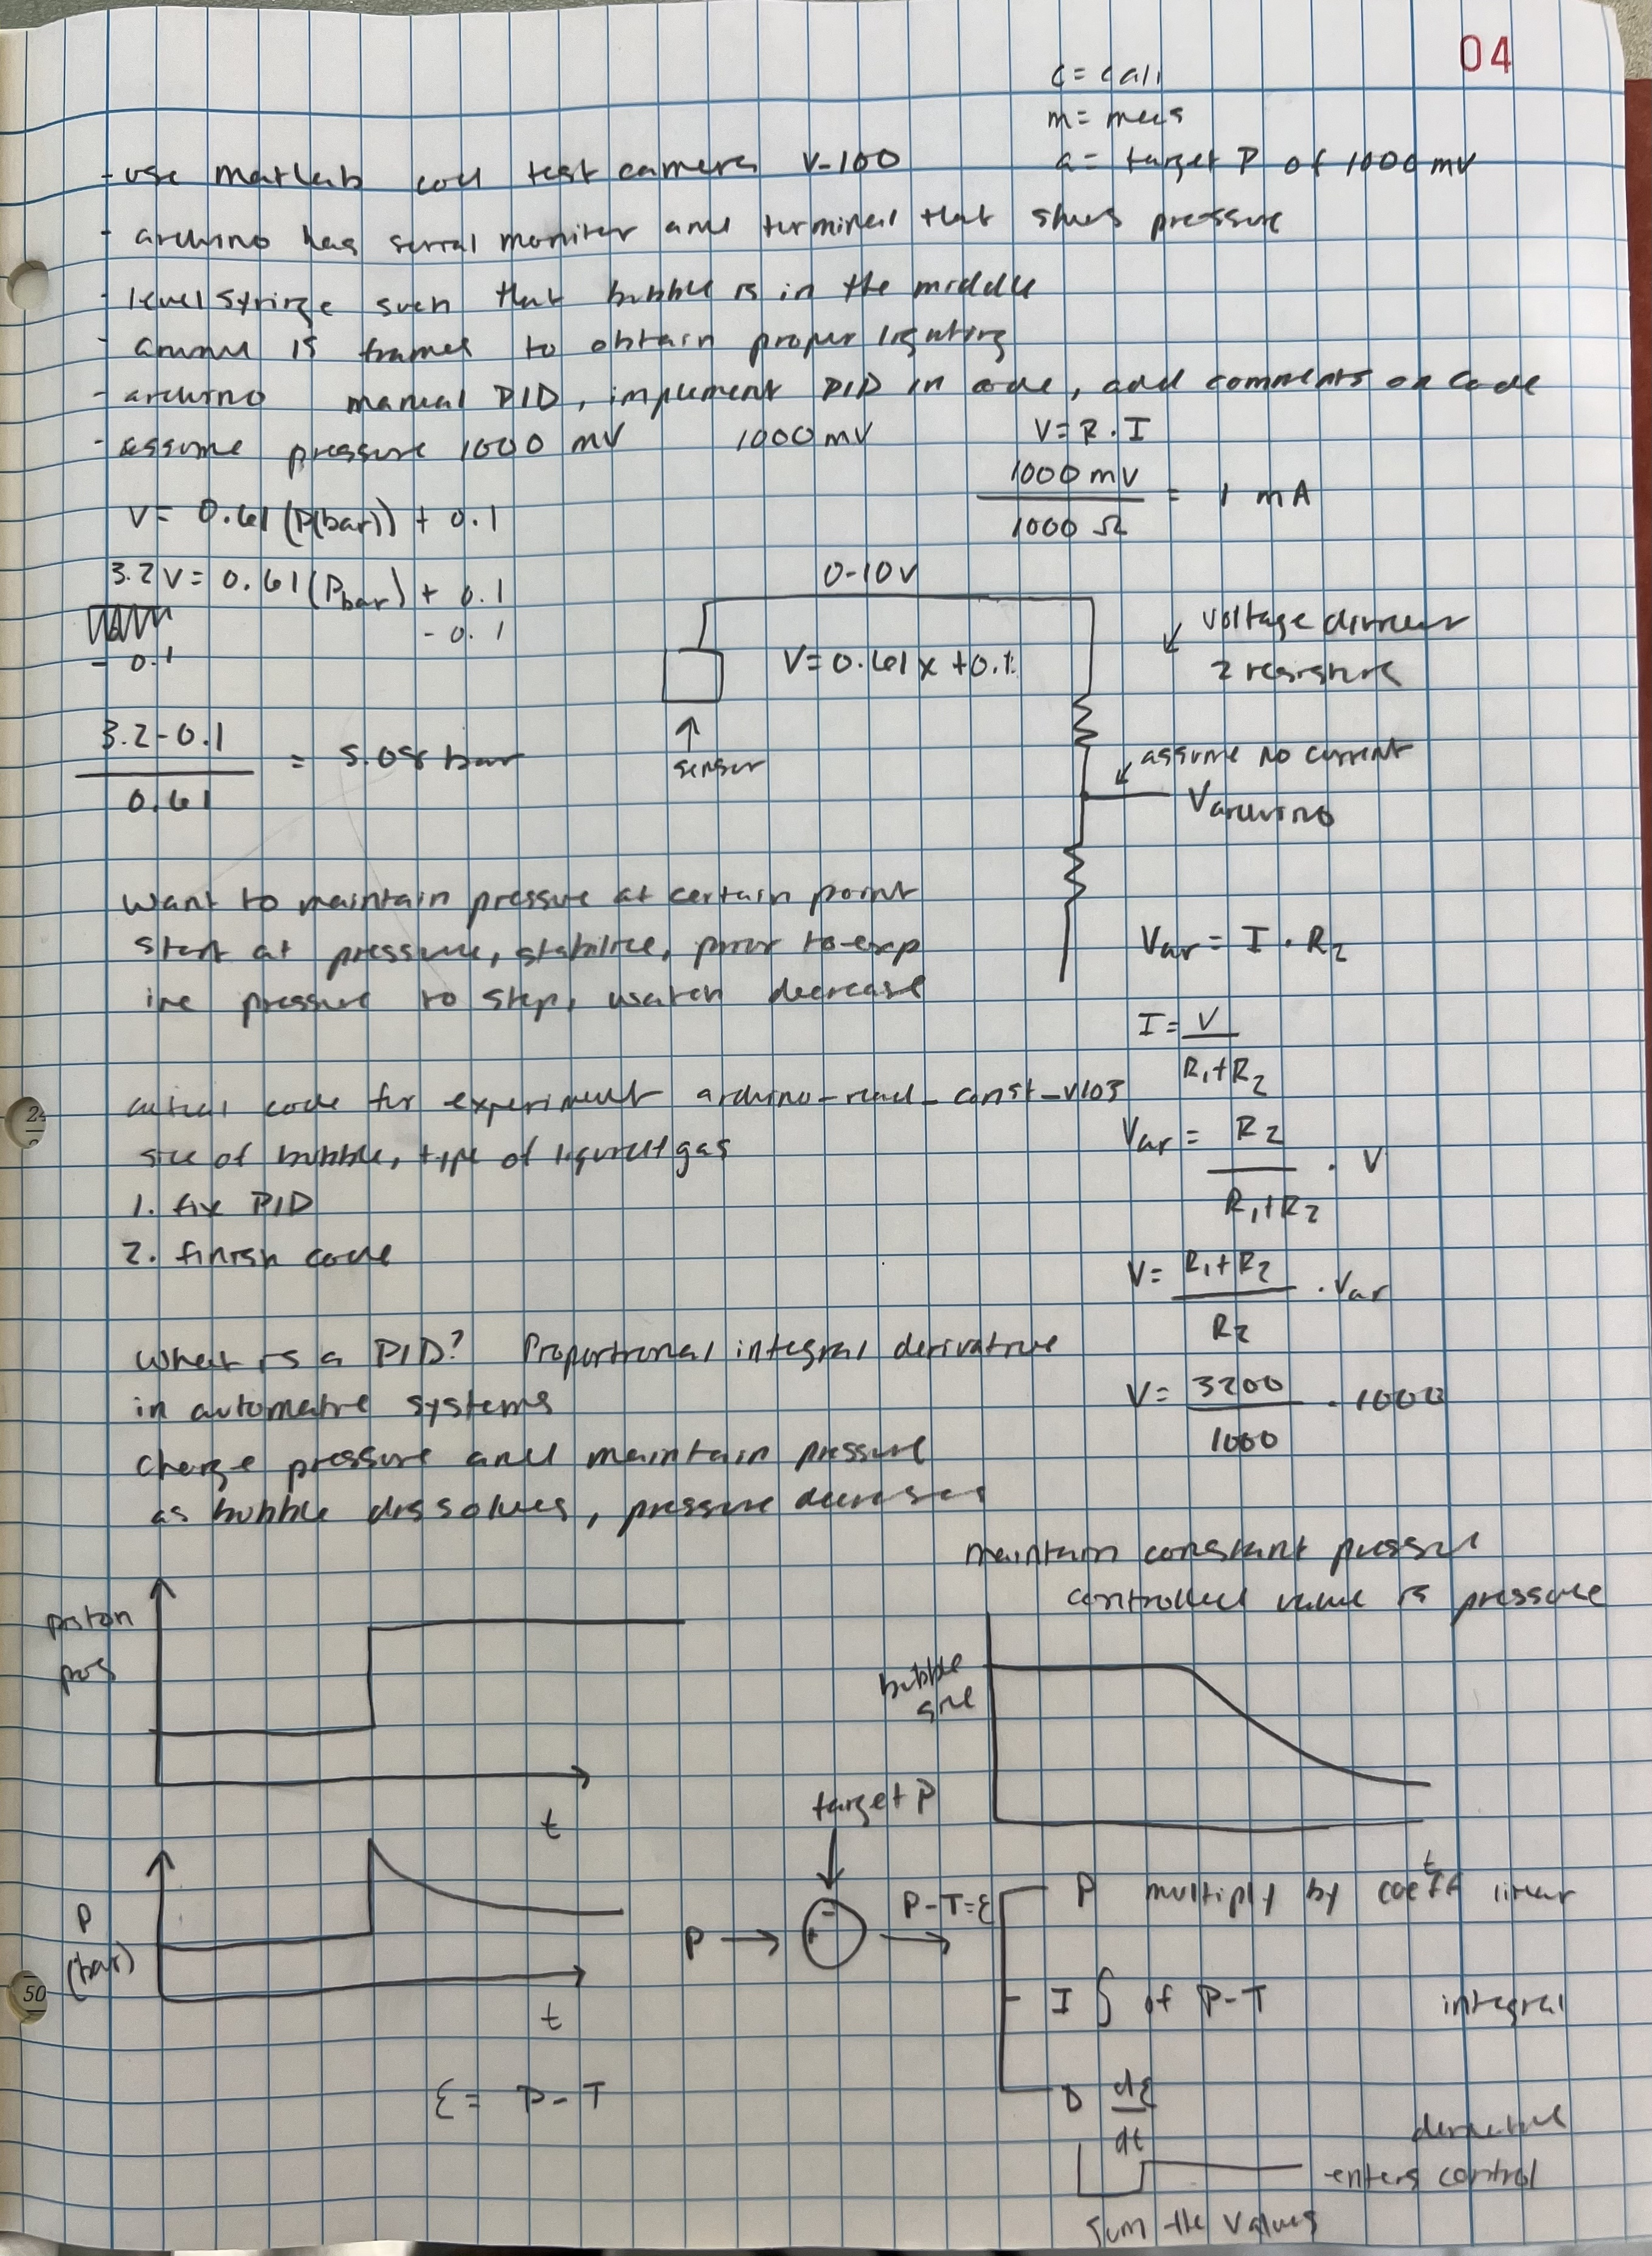 04
c = cali
m = meas
a = target P of 1000 mV
- use matlab test camera V-100
- arduino has serial moniter and terminal that shows pressure
- level syringe such that bubble is in the middle
- 15 frames to obtain proper lighting
- arduino manual PID, implement PID in code, add comments on code
- assume pressure 1000 mV 1000 mV
V = R · I
1000 mV / 1000 Ω = 1 mA
V = 0.61 (P(bar)) + 0.1
3.2 V = 0.61 (Pbar) + 0.1
- 0.1 - 0.1
3.2 - 0.1 / 0.61 = 5.08 bar
0-10V
V = 0.61x + 0.1
sensor
voltage divider
2 resistors
assume no current
Varduino
want to maintain pressure at certain point
start at pressure, stabilize, prior to exp
inc pressure to step, watch decrease
Var = I · R2
I = V / R1+R2
Var = R2 / R1+R2 · V
V = R1+R2 / R2 · Var
V = 3200 / 1000 · 1000
actual code for experiment arduino_read_const_v103
size of bubble, type of liquid+gas
1. fix PID
2. finish code
what is a PID? Proportional integral derivative
in automative systems
change pressure and maintain pressure
as bubble dissolves, pressure decreases
maintain constant pressure
controlled value is pressure
piston
pos
t
bubble
size
t
P
(bar)
t
target P
P
+
-
P-T=ε
P multiply by coeff linear
I ∫ of P-T integral
D dε/dt derivative
ε = P-T
enters control
sum the values
24
50